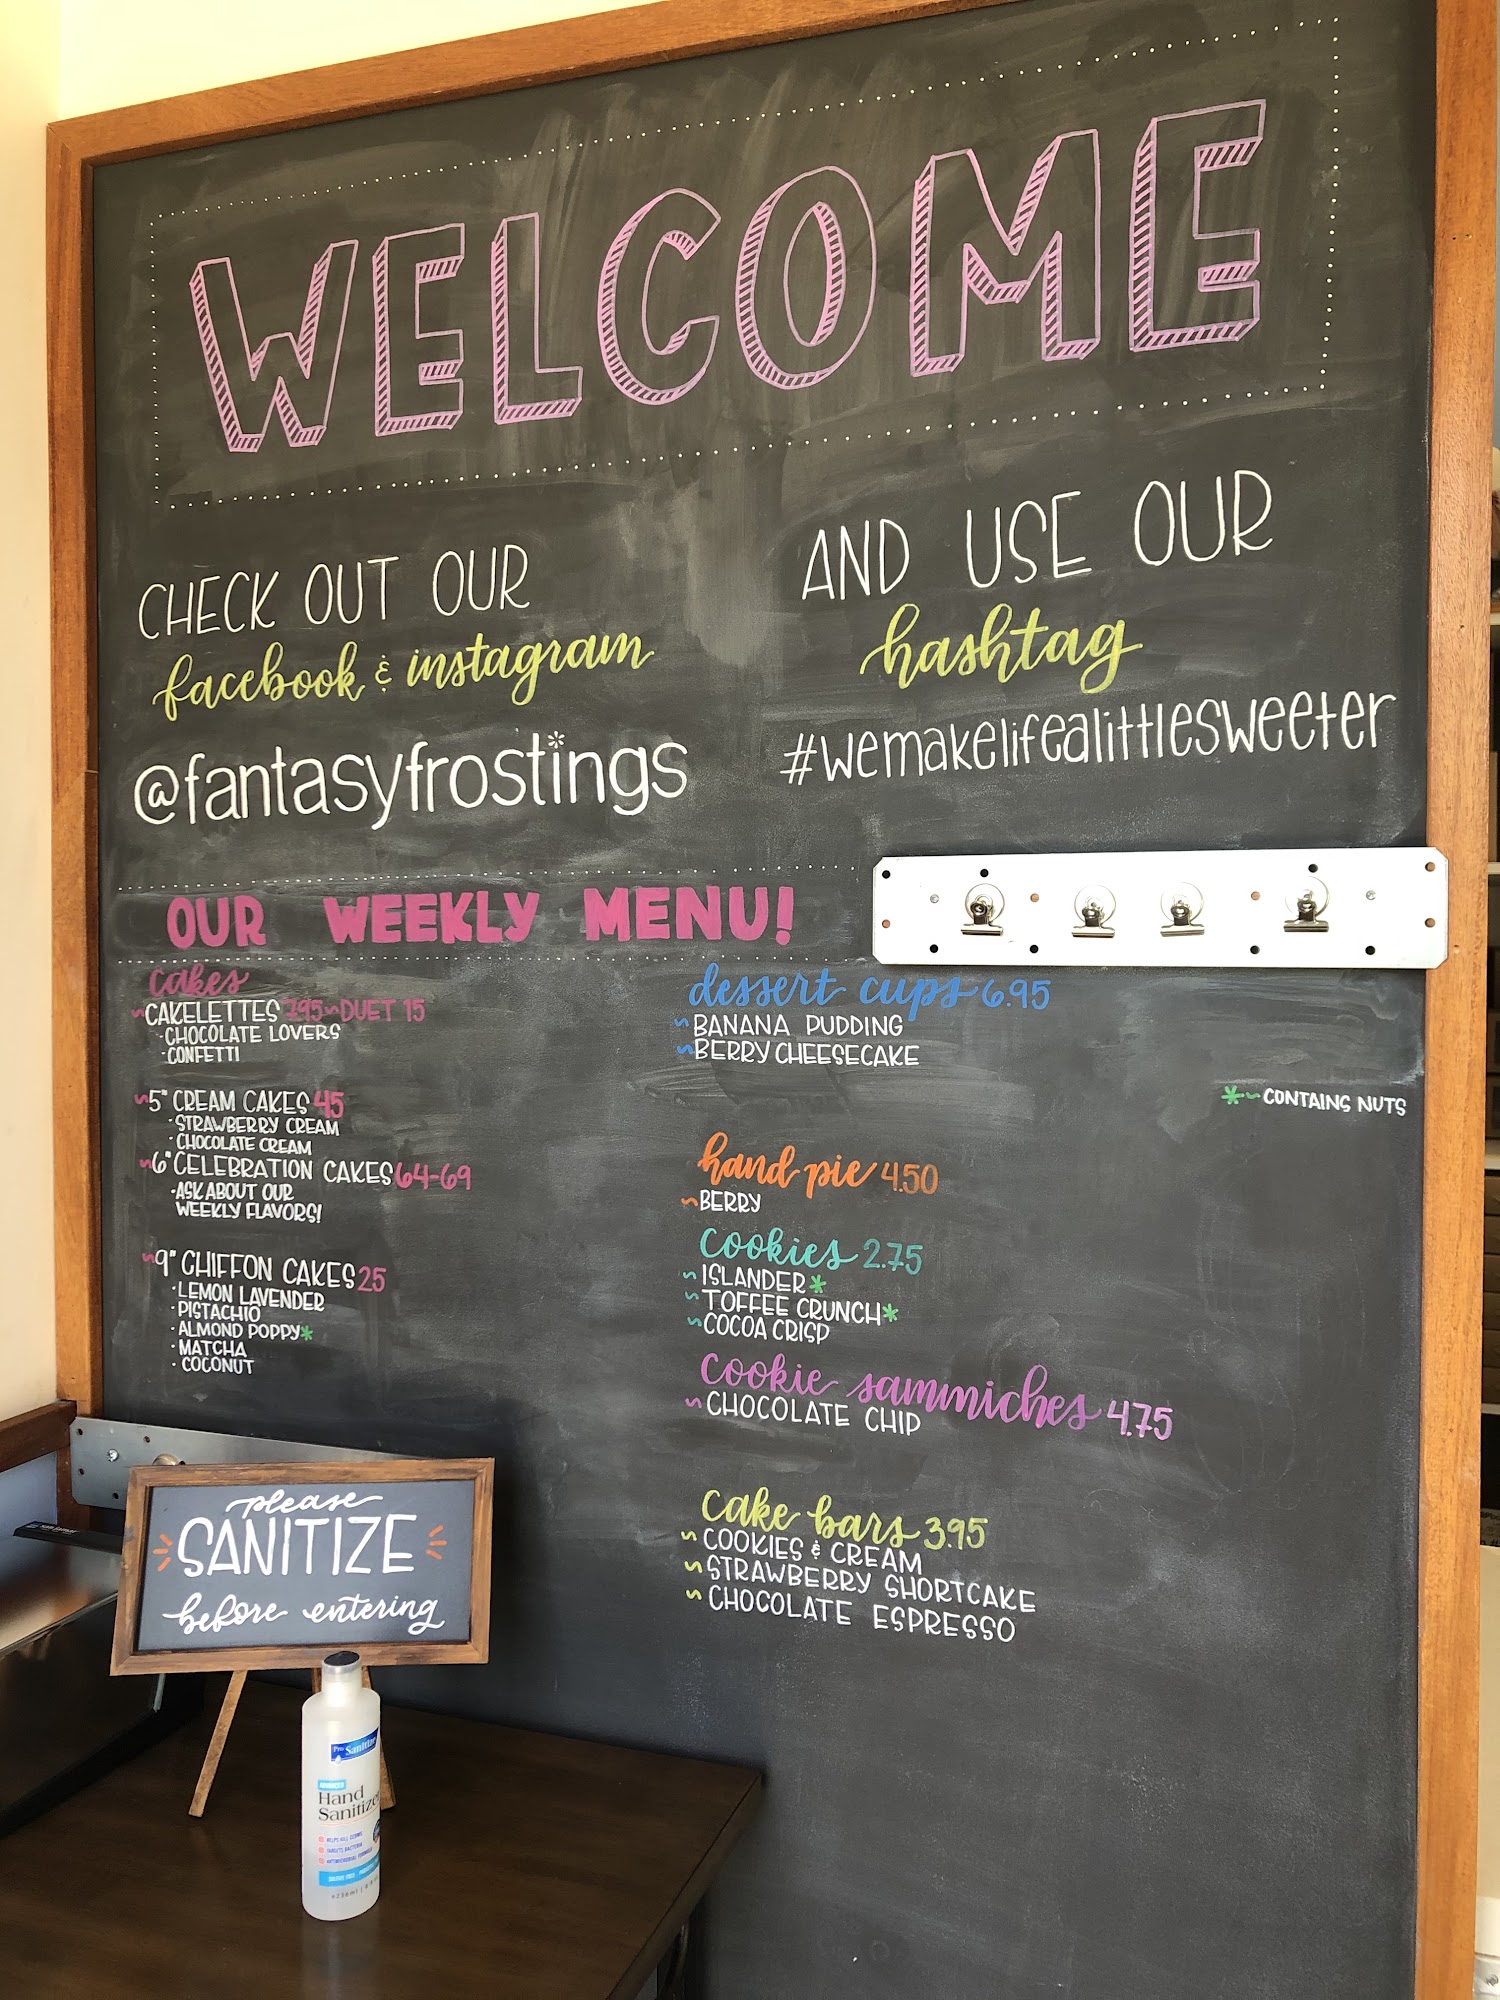 WELCOME
CHECK OUT OUR
facebook & instagram
@fantasyfrostings
AND USE OUR
hashtag
#WEMAKELIFEALITTLESWEETER
OUR WEEKLY MENU!
cakes
~CAKELETTES 7.95~DUET 15
·CHOCOLATE LOVERS
·CONFETTI
~5" CREAM CAKES 45
·STRAWBERRY CREAM
·CHOCOLATE CREAM
~6" CELEBRATION CAKES 64-69
·ASK ABOUT OUR
WEEKLY FLAVORS!
~9" CHIFFON CAKES 25
·LEMON LAVENDER
·PISTACHIO
·ALMOND POPPY*
·MATCHA
·COCONUT
dessert cups 6.95
~BANANA PUDDING
~BERRY CHEESECAKE
*~CONTAINS NUTS
hand pie 4.50
~BERRY
cookies 2.75
~ISLANDER*
~TOFFEE CRUNCH*
~COCOA CRISP
cookie sammiches 4.75
~CHOCOLATE CHIP
cake bars 3.95
~COOKIES & CREAM
~STRAWBERRY SHORTCAKE
~CHOCOLATE ESPRESSO
please
SANITIZE
before entering
Pro
Sanitize
ADVANCED
Hand
Sanitizer
HELPS KILL GERMS
TARGETS BACTERIA
ANTIMICROBIAL FORMULA